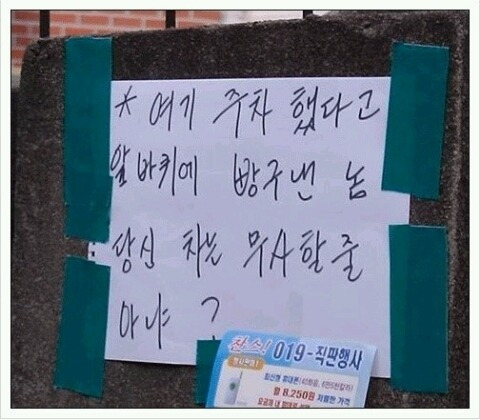 * 여기 주차 했다고
앞바퀴에 빵구낸 놈
당신 차는 무사할줄
아냐 ?
찬스! 019-직판행사
월 8,250원 저렴한 가격